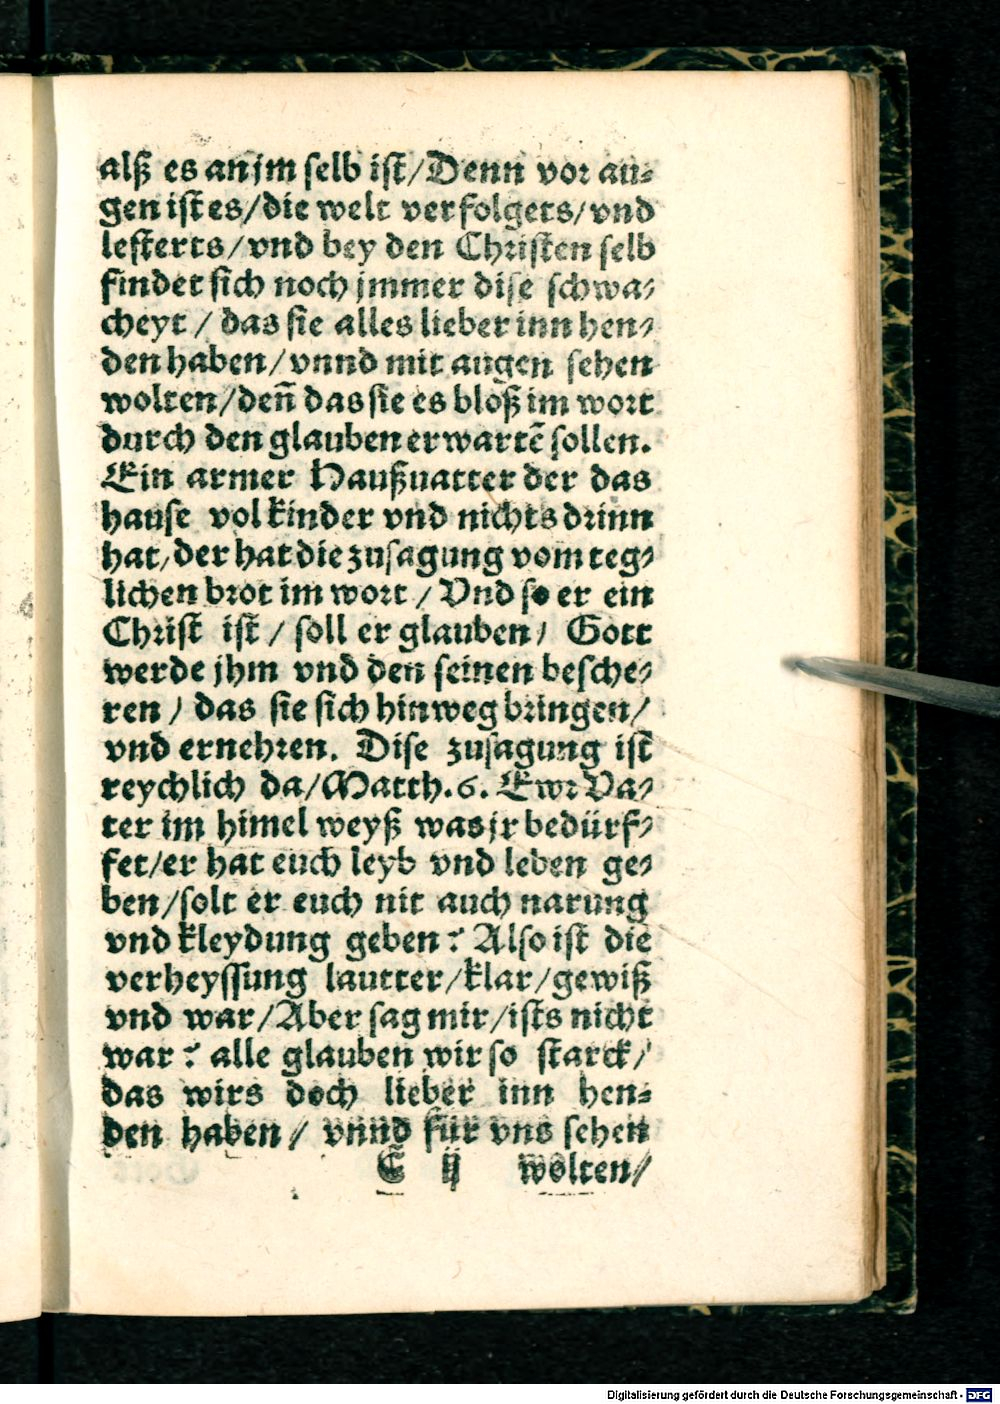 alß es an jm selb ist/Denn vor au-
gen ist es/die welt verfolgets/vnd
lesterts/vnd bey den Christen selb
findet sich noch jmmer dise schwa-
cheyt / das sie alles lieber inn hen-
den haben/vnnd mit augen sehen
wolten/deñ das sie es bloß im wort
durch den glauben erwartẽ sollen.
Ein armer Haußuatter der das
hause vol kinder vnd nichts drinn
hat/der hat die zusagung vom teg-
lichen brot im wort / Vnd so er ein
Christ ist / soll er glauben/ Gott
werde jhm vnd den seinen besche-
ren / das sie sich hinweg bringen/
vnd ernehren. Dise zusagung ist
reychlich da/Matth.6. Ewr Va-
ter im himel weyß was jr bedürf-
fet/er hat euch leyb vnd leben ge-
ben/solt er euch nit auch narung
vnd kleydung geben? Also ist die
verheyssung lautter/klar/gewiß
vnd war/Aber sag mir/ists nicht
war? alle glauben wir so starck/
das wirs doch lieber inn hen-
den haben / vnnd für vns sehen
E ij wolten/
Digitalisierung gefördert durch die Deutsche Forschungsgemeinschaft - DFG